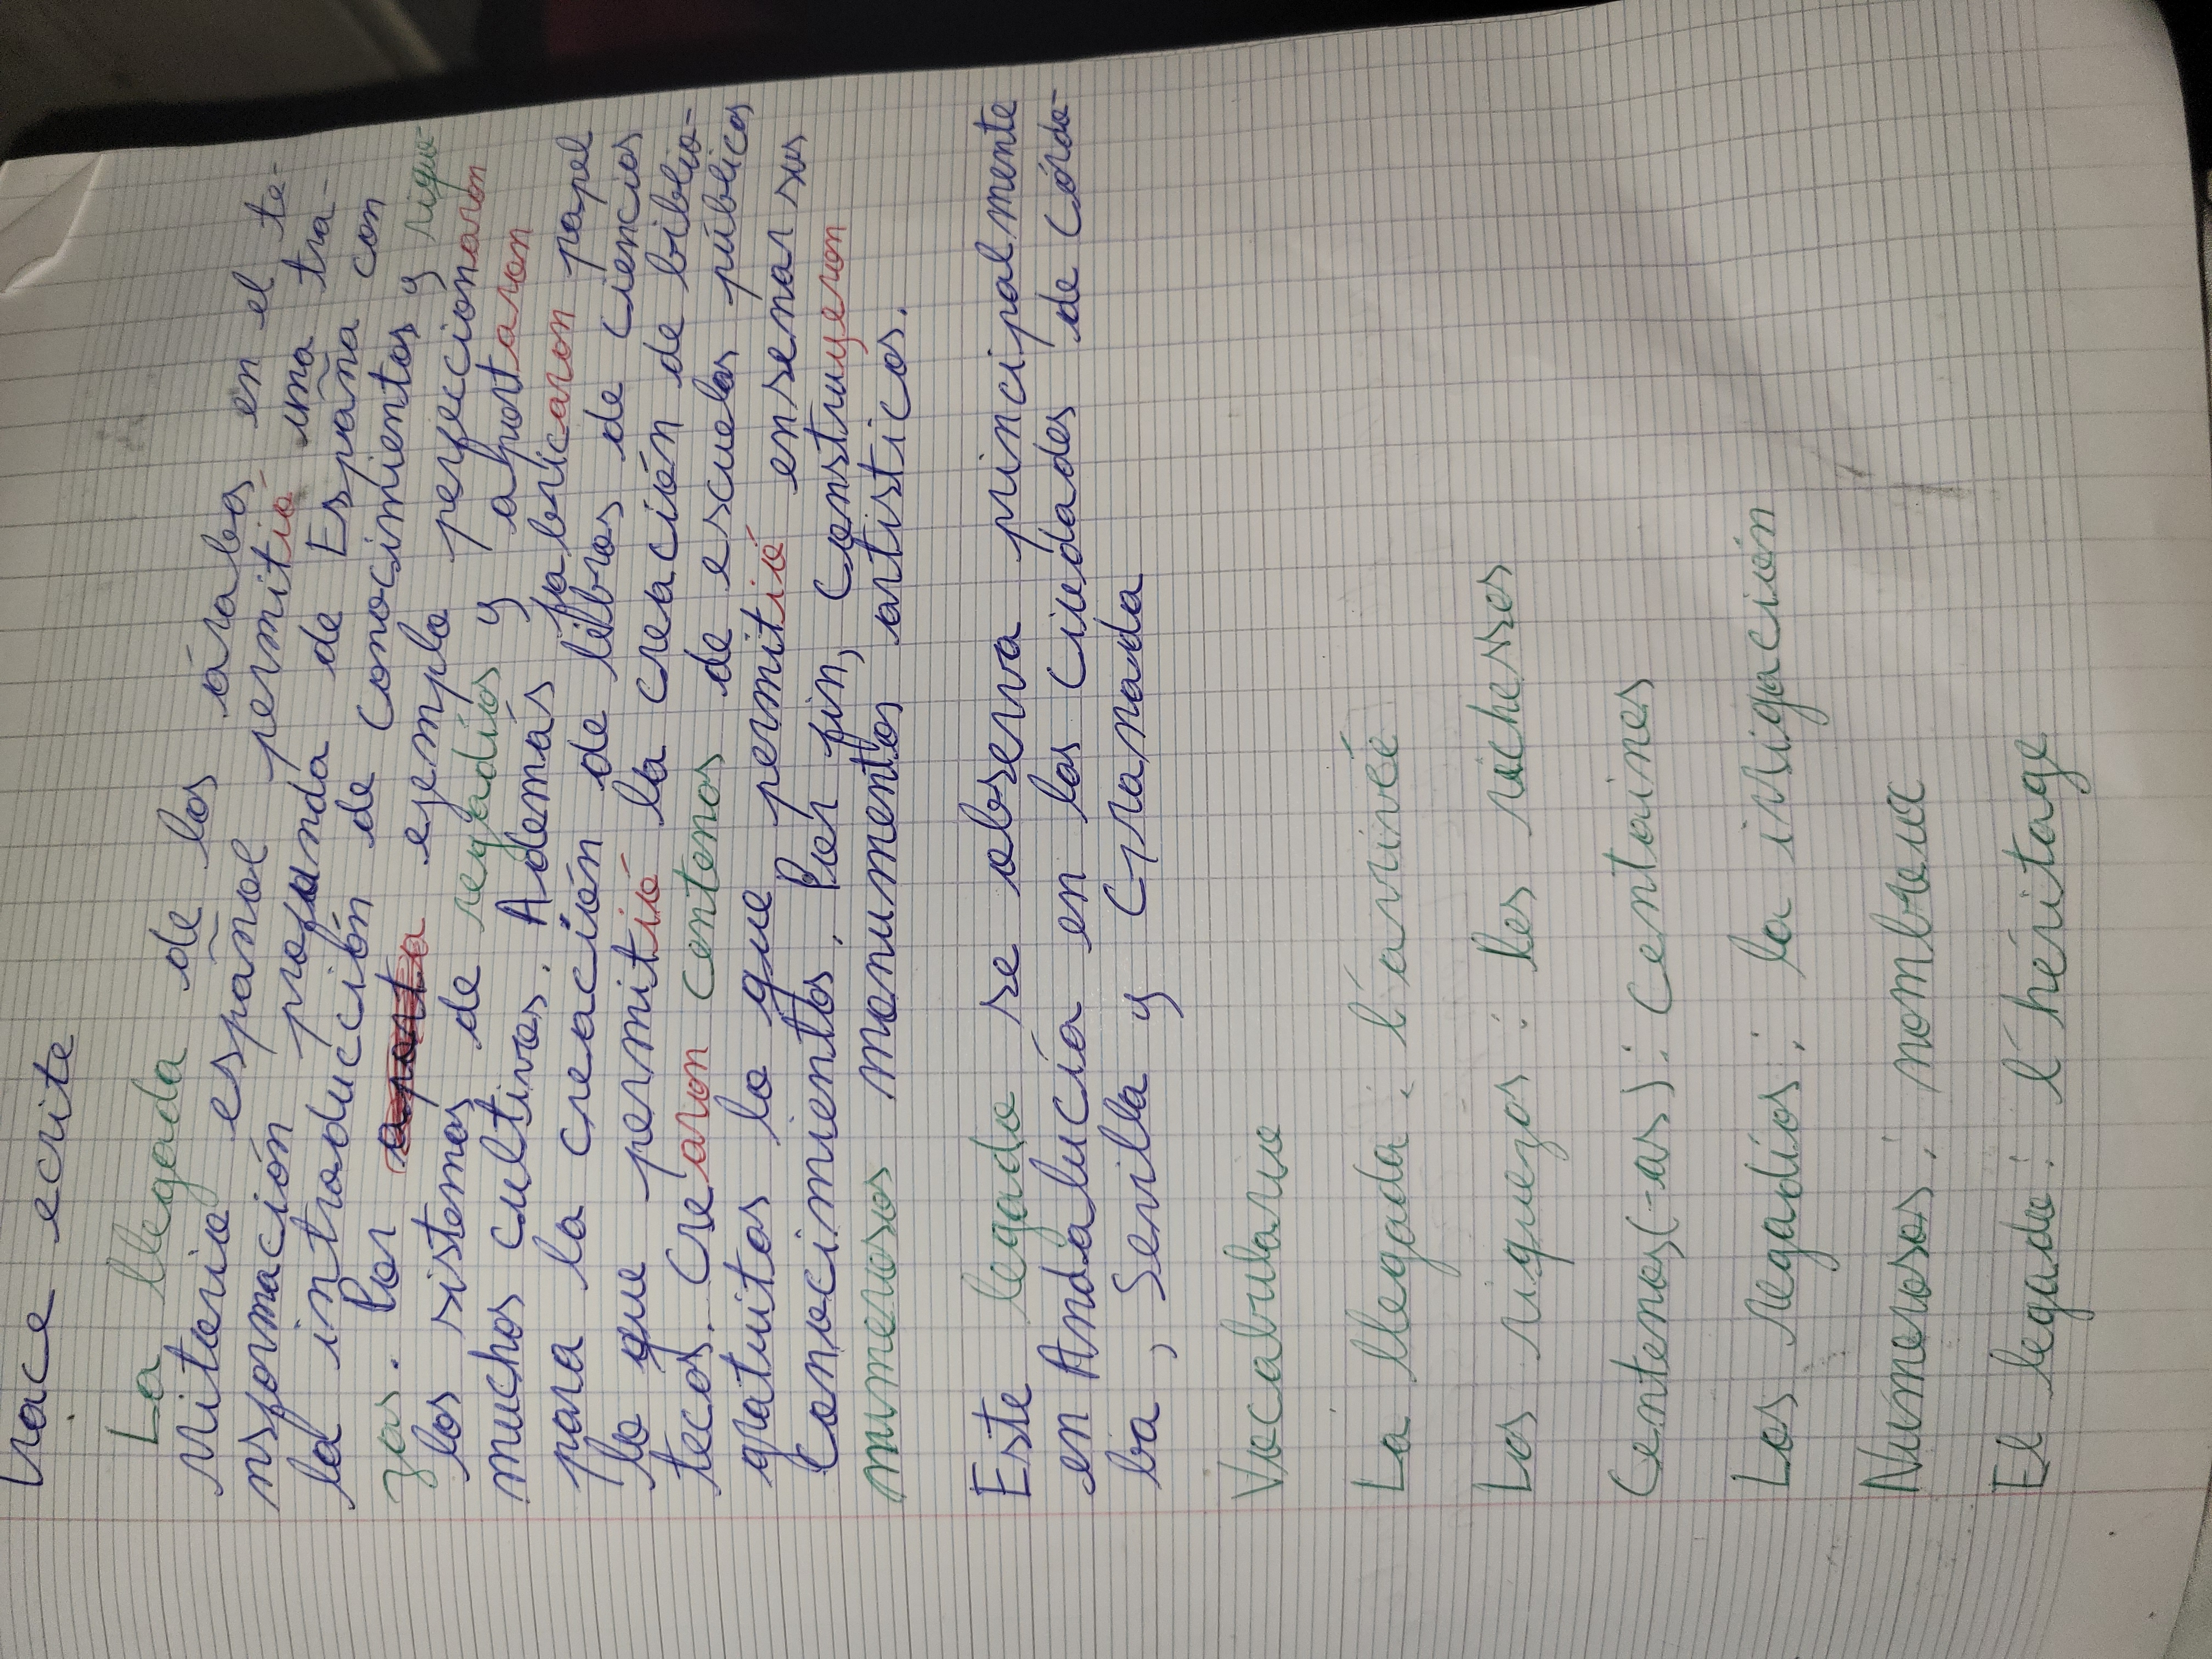 Trace ecrite
La llegada de los árabos en el te-
ritorio español permitió una tra-
nsformación profunda de España con
la introducción de conocimientos y rique-
zas. Por ejemplo perfecionaron
los sistemas de regadíos y aportaron
muchos cultivos. Además fabricaron papel
para la creación de libros de ciencias
lo que permitió la creación de biblio-
tecas. Crearon centenos de escuelas públicas
gratuitas lo que permitió ensenar sus
conocimientos. Por fin, construyeron
numerosos monumentos artisticos.
Este legado se observa principalmente
en Andalucía en las ciudades de Córdo-
ba, Sevilla y Granada
Vocabulario
La llegada : l'arrivée
Las riquezas : les richesses
Centenos(-as) : centaines
Los regadíos : la irrigación
Númerosos : nombreux
El legado : l'héritage